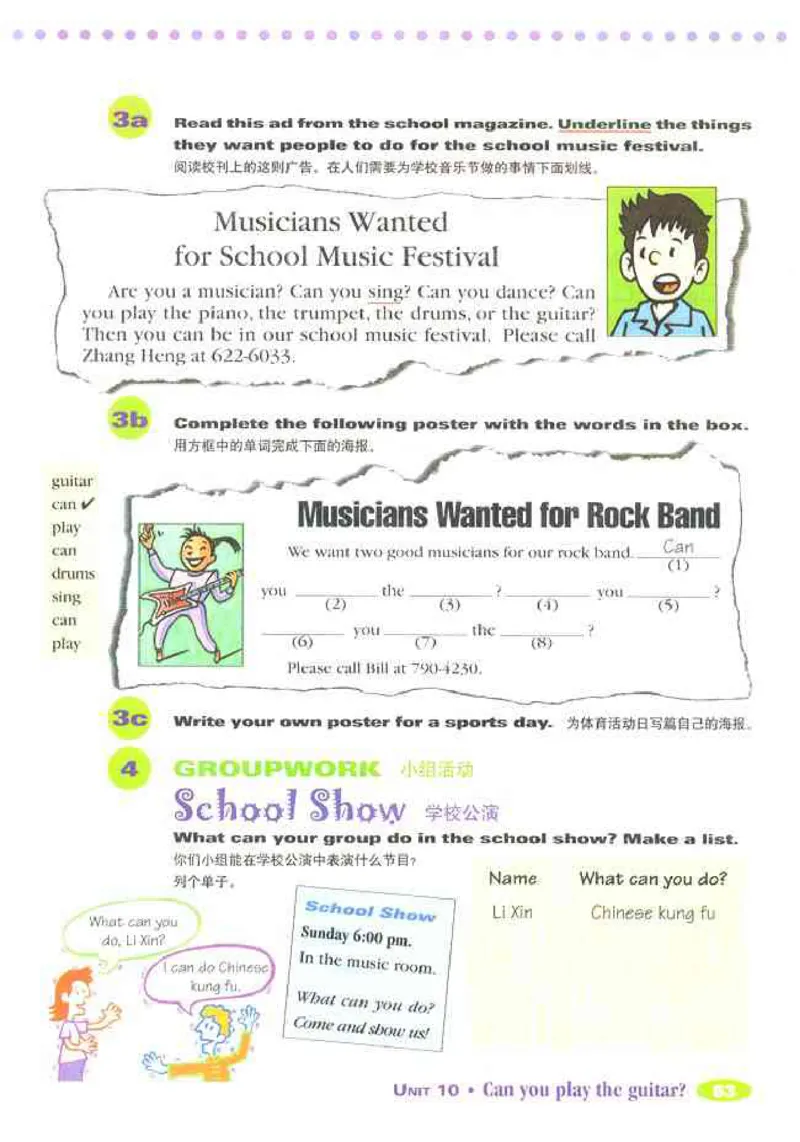 3a
Read this ad from the school magazine. Underline the things
they want people to do for the school music festival.
阅读校刊上的这则广告。在人们需要为学校音乐节做的事情下面划线。
Musicians Wanted
for School Music Festival
Are you a musician? Can you sing? Can you dance? Can
you play the piano, the trumpet, the drums, or the guitar?
Then you can be in our school music festival. Please call
Zhang Heng at 622-6033.
3b
Complete the following poster with the words in the box.
用方框中的单词完成下面的海报。
guitar
can ✔
play
can
drums
sing
can
play
Musicians Wanted for Rock Band
We want two good musicians for our rock band. Can
(1)
you ________ the ________ ? ________ you ________ ?
(2) (3) (4) (5)
________ you ________ the ________ ?
(6) (7) (8)
Please call Bill at 790-4230.
3c
Write your own poster for a sports day. 为体育活动日写篇自己的海报。
4
GROUPWORK 小组活动
School Show 学校公演
What can your group do in the school show? Make a list.
你们小组能在学校公演中表演什么节目?
列个单子。
What can you
do, Li Xin?
I can do Chinese
kung fu.
School Show
Sunday 6:00 pm.
In the music room.
What can you do?
Come and show us!
Name What can you do?
Li Xin Chinese kung fu
UNIT 10 • Can you play the guitar? 63